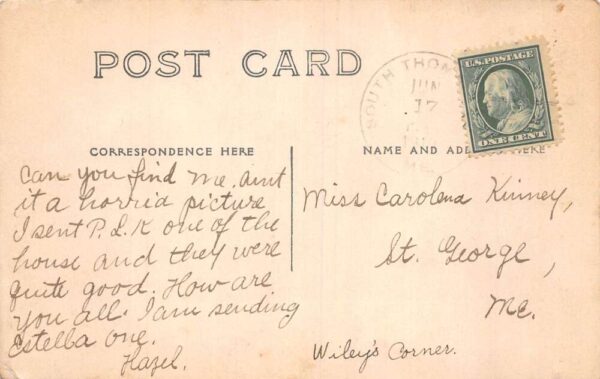 POST CARD
SOUTH THOM
JUN
17
U.S. POSTAGE
ONE CENT
CORRESPONDENCE HERE
NAME AND ADD HERE
Can you find me. aint
it a horrid picture
I sent P. L. K one of the
house and they were
quite good. How are
you all. I am sending
Estella one.
Hazel.
Miss Carolena Kinney,
St. George,
Me.
Wiley's Corner.